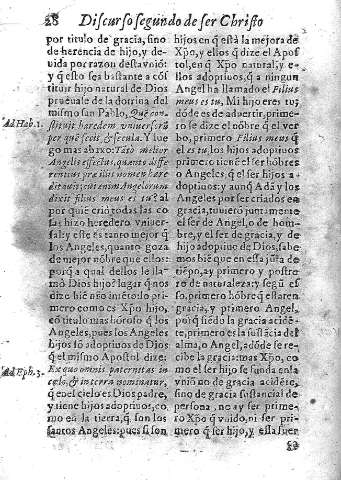 28 Discurso segundo de ser Christo
por titulo de gracia, sino
de herencia de hijo, y de-
uida por razon desta vniõ:
y q̃ esto sea bastante a cõs
tituir hijo natural de Dios
prueuale de la dotrina del
mismo san Pablo, Quē con-
Ad Hab. 1.
stituit haredem vniuersorũ
per quē fecit & secula. Y lue
go mas abaxo: Tātò melior
Angelis effectus, quanto diffe
rentius pre illis nomen hære
ditauit; cui enim Angelorum
dixit filius meus es tu? al
por quiē criò todas las co
sas hizo heredero vniuer-
sal; y este es tanto mejor q̃
los Angeles, quanto goza
de mejor nõbre que ellos:
porq̃ a qual dellos le lla-
mò Dios hijo? lugar q̃ nos
dize biē no ancetodo pri-
mero como es Xp̃o hijo,
cõ titulo mas honroso q̃ los
Angeles, pues los Angeles
hijos sõ adoptiuos de Dios
q̃ el mismo Apostol dize:
Ad Eph. 3.
Ex quo omnis paternitas in
cęlo, & in terra nominatur,
que en el cielo es Dios padre,
y tiene hijos adoptiuos, co
mo en la tierra, q̃ son los
santos Angeles: pues si son
hijos en q̃ està la mejora de
Xp̃o, y ellos q̃ dize el Apos
tol, en q̃ Xp̃o natural, y e-
llos adoptiuos, q̃ a ningun
Angel ha llamado el Filius
meus es tu, Mi hijo eres tu;
dõde es de aduertir, prime-
ro se dize el nõbre q̃ el ver
bo, primero Filius meus q̃
el es tu, los hijos adoptiuos
primero tienē el ser hõbres
o Angeles, q̃ el ser hijos a-
doptiuos: y aunq̃ Adã y los
Angeles por ser criados en
gracia, tuuierõ juntamente
el ser de Angel, o de hom-
bre, y el ser de gracia, y de
hijo adoptiuo de Dios, sabe
mos biē que en esta jũta de
tiẽpo, ay primero y postre
ro de naturaleza: y segũ es
so, primero hõbre q̃ estar en
gracia, y primero Angel,
porq̃ siẽdo la gracia accidẽ
te, primero es la sustãcia del
alma, o Angel, adõde se re-
cibe la gracia: mas Xp̃o, co
mo el ser hijo se funda en la
vniõ no de gracia acidẽte,
sino de gracia sustancial de
persona, no ay ser prime-
ro Xp̃o q̃ vnido, ni ser pri-
mero q̃ ser hijo, y essa fuer